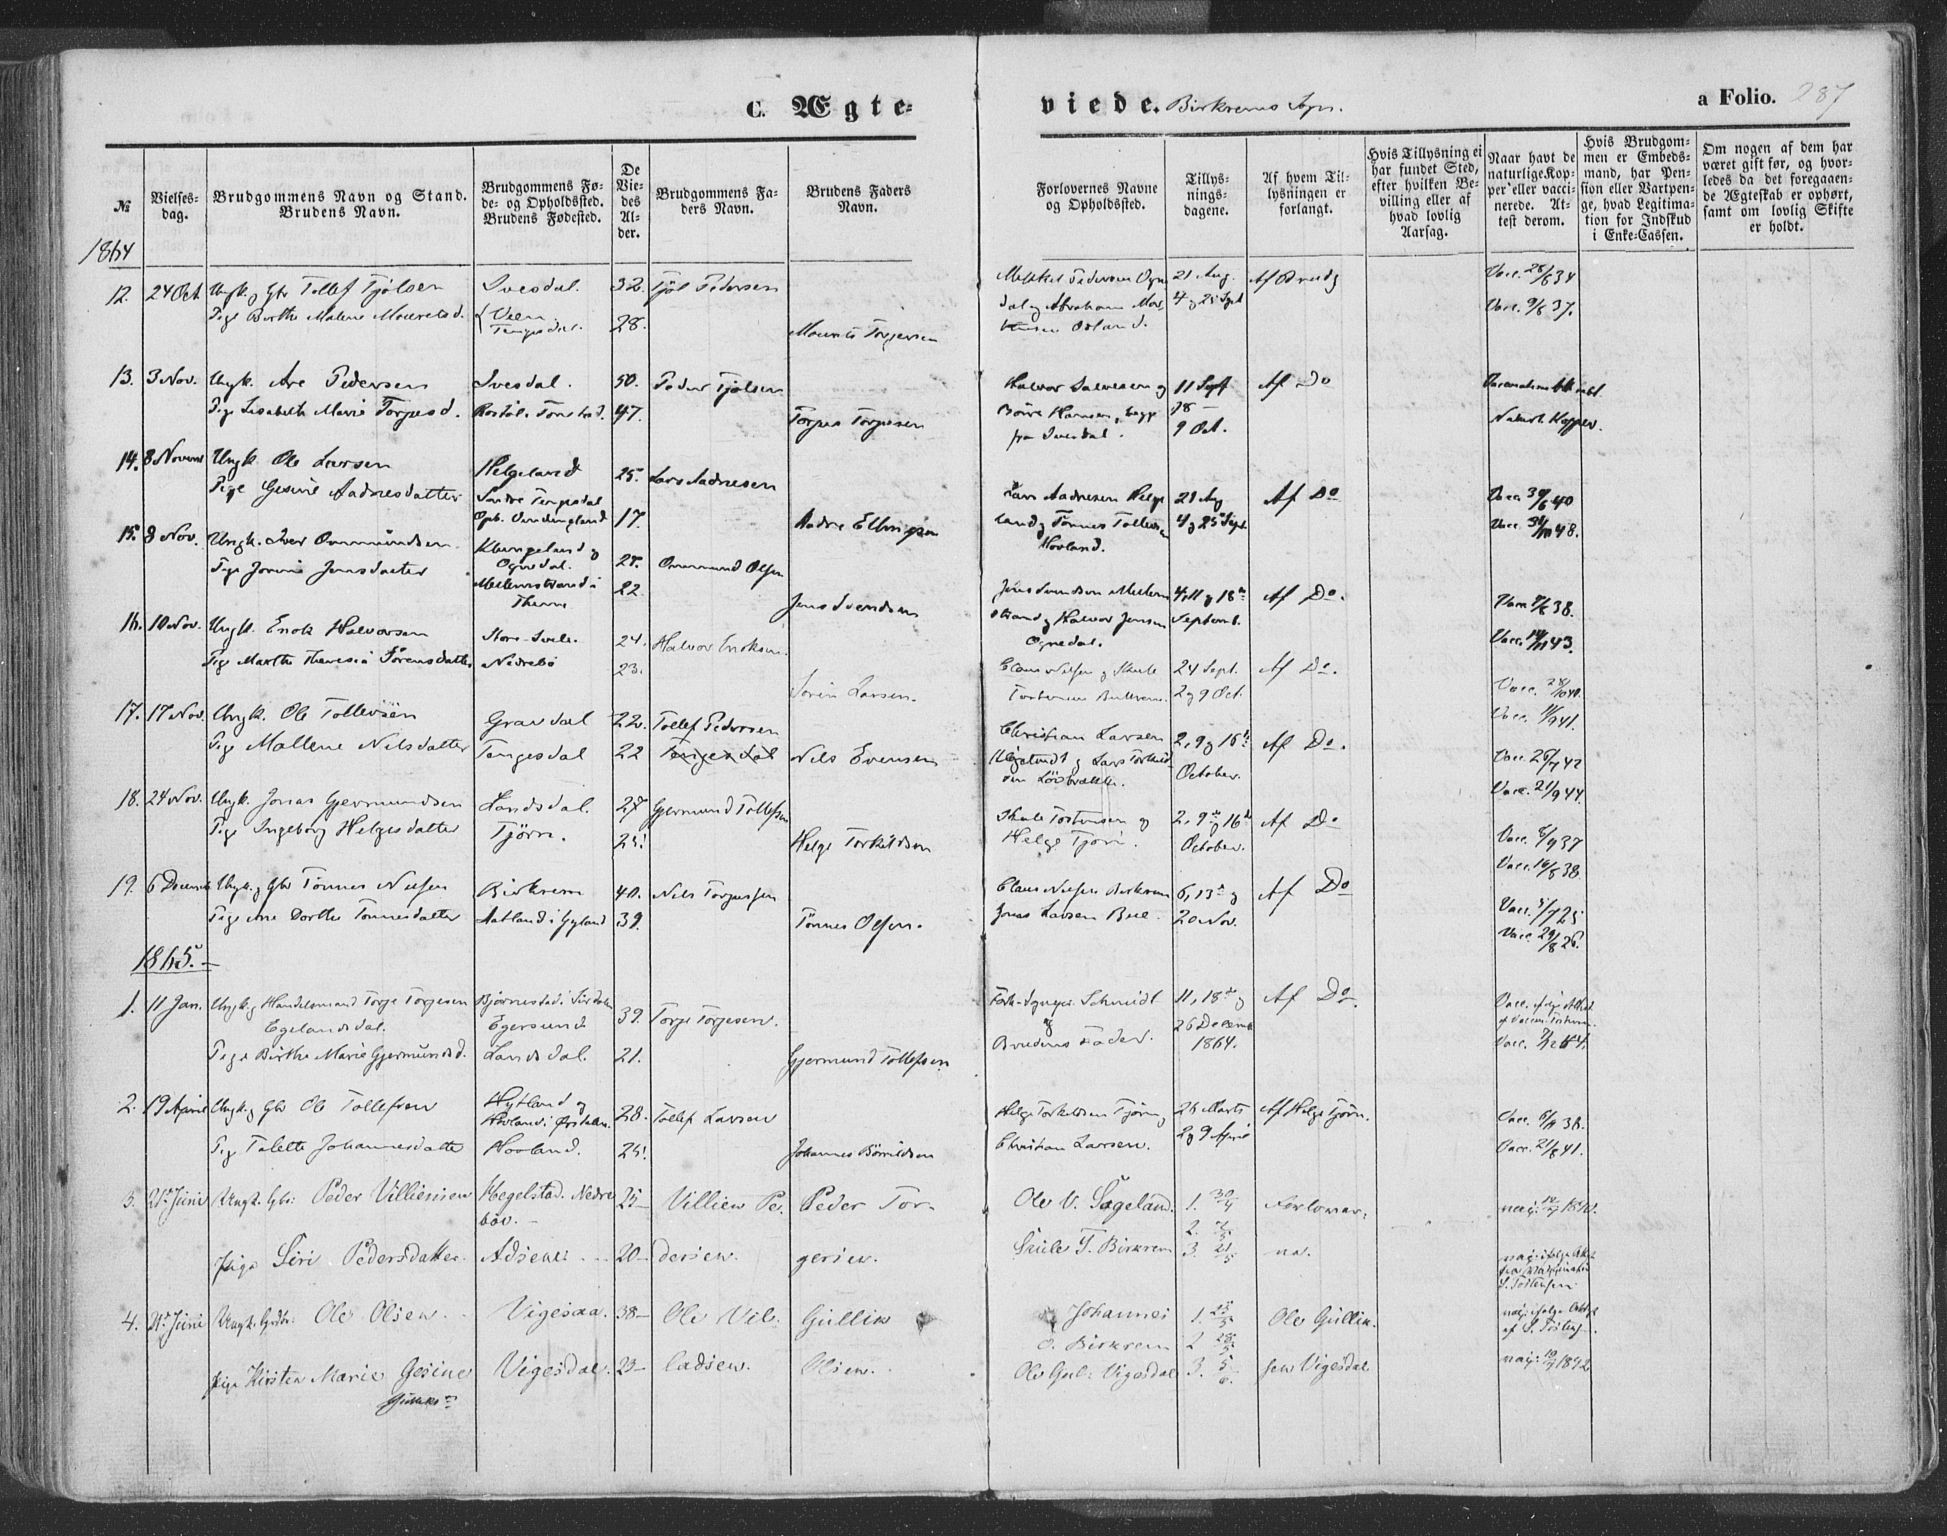 C. Ægte-
viede. Birkrems Sogn.
a Folio. 287
№
Vielsesdag.
Brudgommens Navn og Stand. Brudens Navn.
Brudgommens Føde- og Opholdssted. Brudens Fødested.
De Viedes Alder.
Brudgommens Faders Navn.
Brudens Faders Navn.
Forlovernes Navne og Opholdsted.
Tillysningsdagene.
Af hvem Tillysningen er forlangt.
Hvis Tillysning ei har fundet Sted, efter hvilken Bevilling eller af hvad lovlig Aarsag.
Naar havt de naturlige Kopper eller vaccinerede. Attest derom.
Hvis Brudgommen er Embedsmand, har Pension eller Vartpenge, hvad Legitimation for Indskud i Enke-Cassen.
Om nogen af dem har været gift før, og hvorledes da det foregaaende Ægteskab er ophørt, samt om lovlig Skifte er holdt.
1864
12. 24 Oct Ungk. og Gbr Tollef Tjølsen Svesdal. 32. Tjøl Pedersen
Pige Berthe Malene Mauretsd. Veen Tengesdal 28. Maurits Torgersen
Mekkel Pedersen Ogne
dal og Abraham Mor
tensen Osland.
21 Aug.
4 og 25 Sept
Af Brudg
Vacc. 28/6 34
Vacc. 9/8 37.
13. 3 Nov. Ungk. Are Pedersen Svesdal. 50. Peder Tjølsen
Pige Lisabeth Marie Torjusd. 47. Torjus Torjusen
Halvor Salvesen og
Børre Hansen, begge
fra Svesdal.
11 Sept
18 —
9 Oct.
Af Do
Naturl. Kopper.
14. 8 Novemb Ungk. Ole Larsen Helgeland 25. Lars Aadnesen
Pige Gesine Aadnesdatter Søndre Tengesdal
Oph. 17. Aadne Ellingsen
Lars Aadnesen Helge
land og Tønnes Tollevsen
Hovland.
21 Aug
4 og 25 Sept.
Af Do
Vacc. 30/6 40
Vacc. 48.
15. 8 Nov. Ungk. Iver Ommundsen Klungeland og
Ognedal. 25. Ommund Olsen
Pige Jorine Jensdatter Mellemstrand i
Theime 22 Jens Svendsen
Jens Svendsen Mellem
strand og Halvor Jensen
Ognedal.
4, 11 og 18de
Septemb.
Af Do.
38.
Vacc. 43.
16. 10 Nov. Ungk. Enok Halvorsen Store-Svele. 24. Halvor Enoksen.
Pige Marthe Theresia Sørensdatter Nedrebø 23. Søren Larsen.
Claus Nelsen og Skule
Torstensen Birkrem.
24 Sept.
2 og 9 Oct.
Af Do.
Vacc. 28/10 40.
Vacc. 11/9 41.
17. 17 Nov. Ungk. Ole Tollevsen Gravdal 22. Tollef Pedersen
Pige Mallene Nilsdatter Tengesdal 22 Tengesdal Nils Evensen
Christian Larsen
og Lars Torkild
sen Løvbrække.
2, 9 og 16de
October.
Af Do.
Vacc. 26/7 42
Vacc. 21/9 44.
18. 24 Nov. Ungk. Jonas Gjermundsen Landsdal. 27 Gjermund Tollefsen
Pige Ingeborg Helgesdatter Tjørn. 25. Helge Torkildsen
Skule Torstensen og
Helge Tjørn.
2, 9de og 16de
October.
Af Do
Vacc. 6/9 37
Vacc. 16/8 38.
19. 6 Decemb Ungk. og Gbr Tønnes Nelsen Birkrem 40. Nils Torjussen
Pige Ane Dorthe Tønnesdatter Aatland i Gyland 39. Tønnes Olsen.
Claus Nelsen Birkrem
Jonas Larsen Bue.
6, 13de og
20 Nov.
Af Do
Vacc. 4/7 25
Vacc. 29/8 26.
1865.
1. 11 Jan. Ungk. og Handelsmand Torje Torjesen
Egelandsdal. Bjørnestad i Sirdalen
Egersund 39. Torje Torjesen.
Pige Birthe Marie Gjermundsd. Landsdal. 21. Gjermund Tollefsen
Schmidt
og
Brudens Fader.
11, 18de og
26 Decemb
1864.
Af Do.
Vacc. ifølge Attest
af Torstensen.
Vacc. 44.
2. 19 April Ungk. og Gbr Ole Tollefsen Hytland og
Hovland i Ørsdalen 28. Tollef Larsen
Pige Talette Johannesdatte Hovland. 25. Johannes Børrildsen
Helge Torkildsen Tjørn og
Christian Larsen.
26 Marts
2 og 9 April
Af Helge Tjørn.
Vacc. 38.
Vacc. 21/6 41.
3. 21de Juni Ungk. Gbr: Peder Villiensen Hegelstad. Nedre
bøv. 25— Villien Pe- Peder Tor-
Pige Siri Pedersdatter Adsenes 20— dersen. gersen.
Ole V. Sageland.
Skule T. Birkrem
1. 30/4
2. 7/5
3. 21/5
Forlover-
ne.
14/9 1840.
vac: ifølge Attest
fra
S. Torstensen.
4. 21de Juni Ungk. Grdbr: Ole Olsen Vigesaa. 38— Ole Vil- Gullik
Pige Kirsten Marie Gesine
Gulliks Vigesdal. 23— ladsen. Olsen.
Johannes
O. Birkrem
Ole Gul: Vigesdal
1. 25/5
2 28/5
3. 5/6.
Ole Gullik-
sen Vigesdal
vac: ifølge Attest
af S. Torstens.
vac: 1842